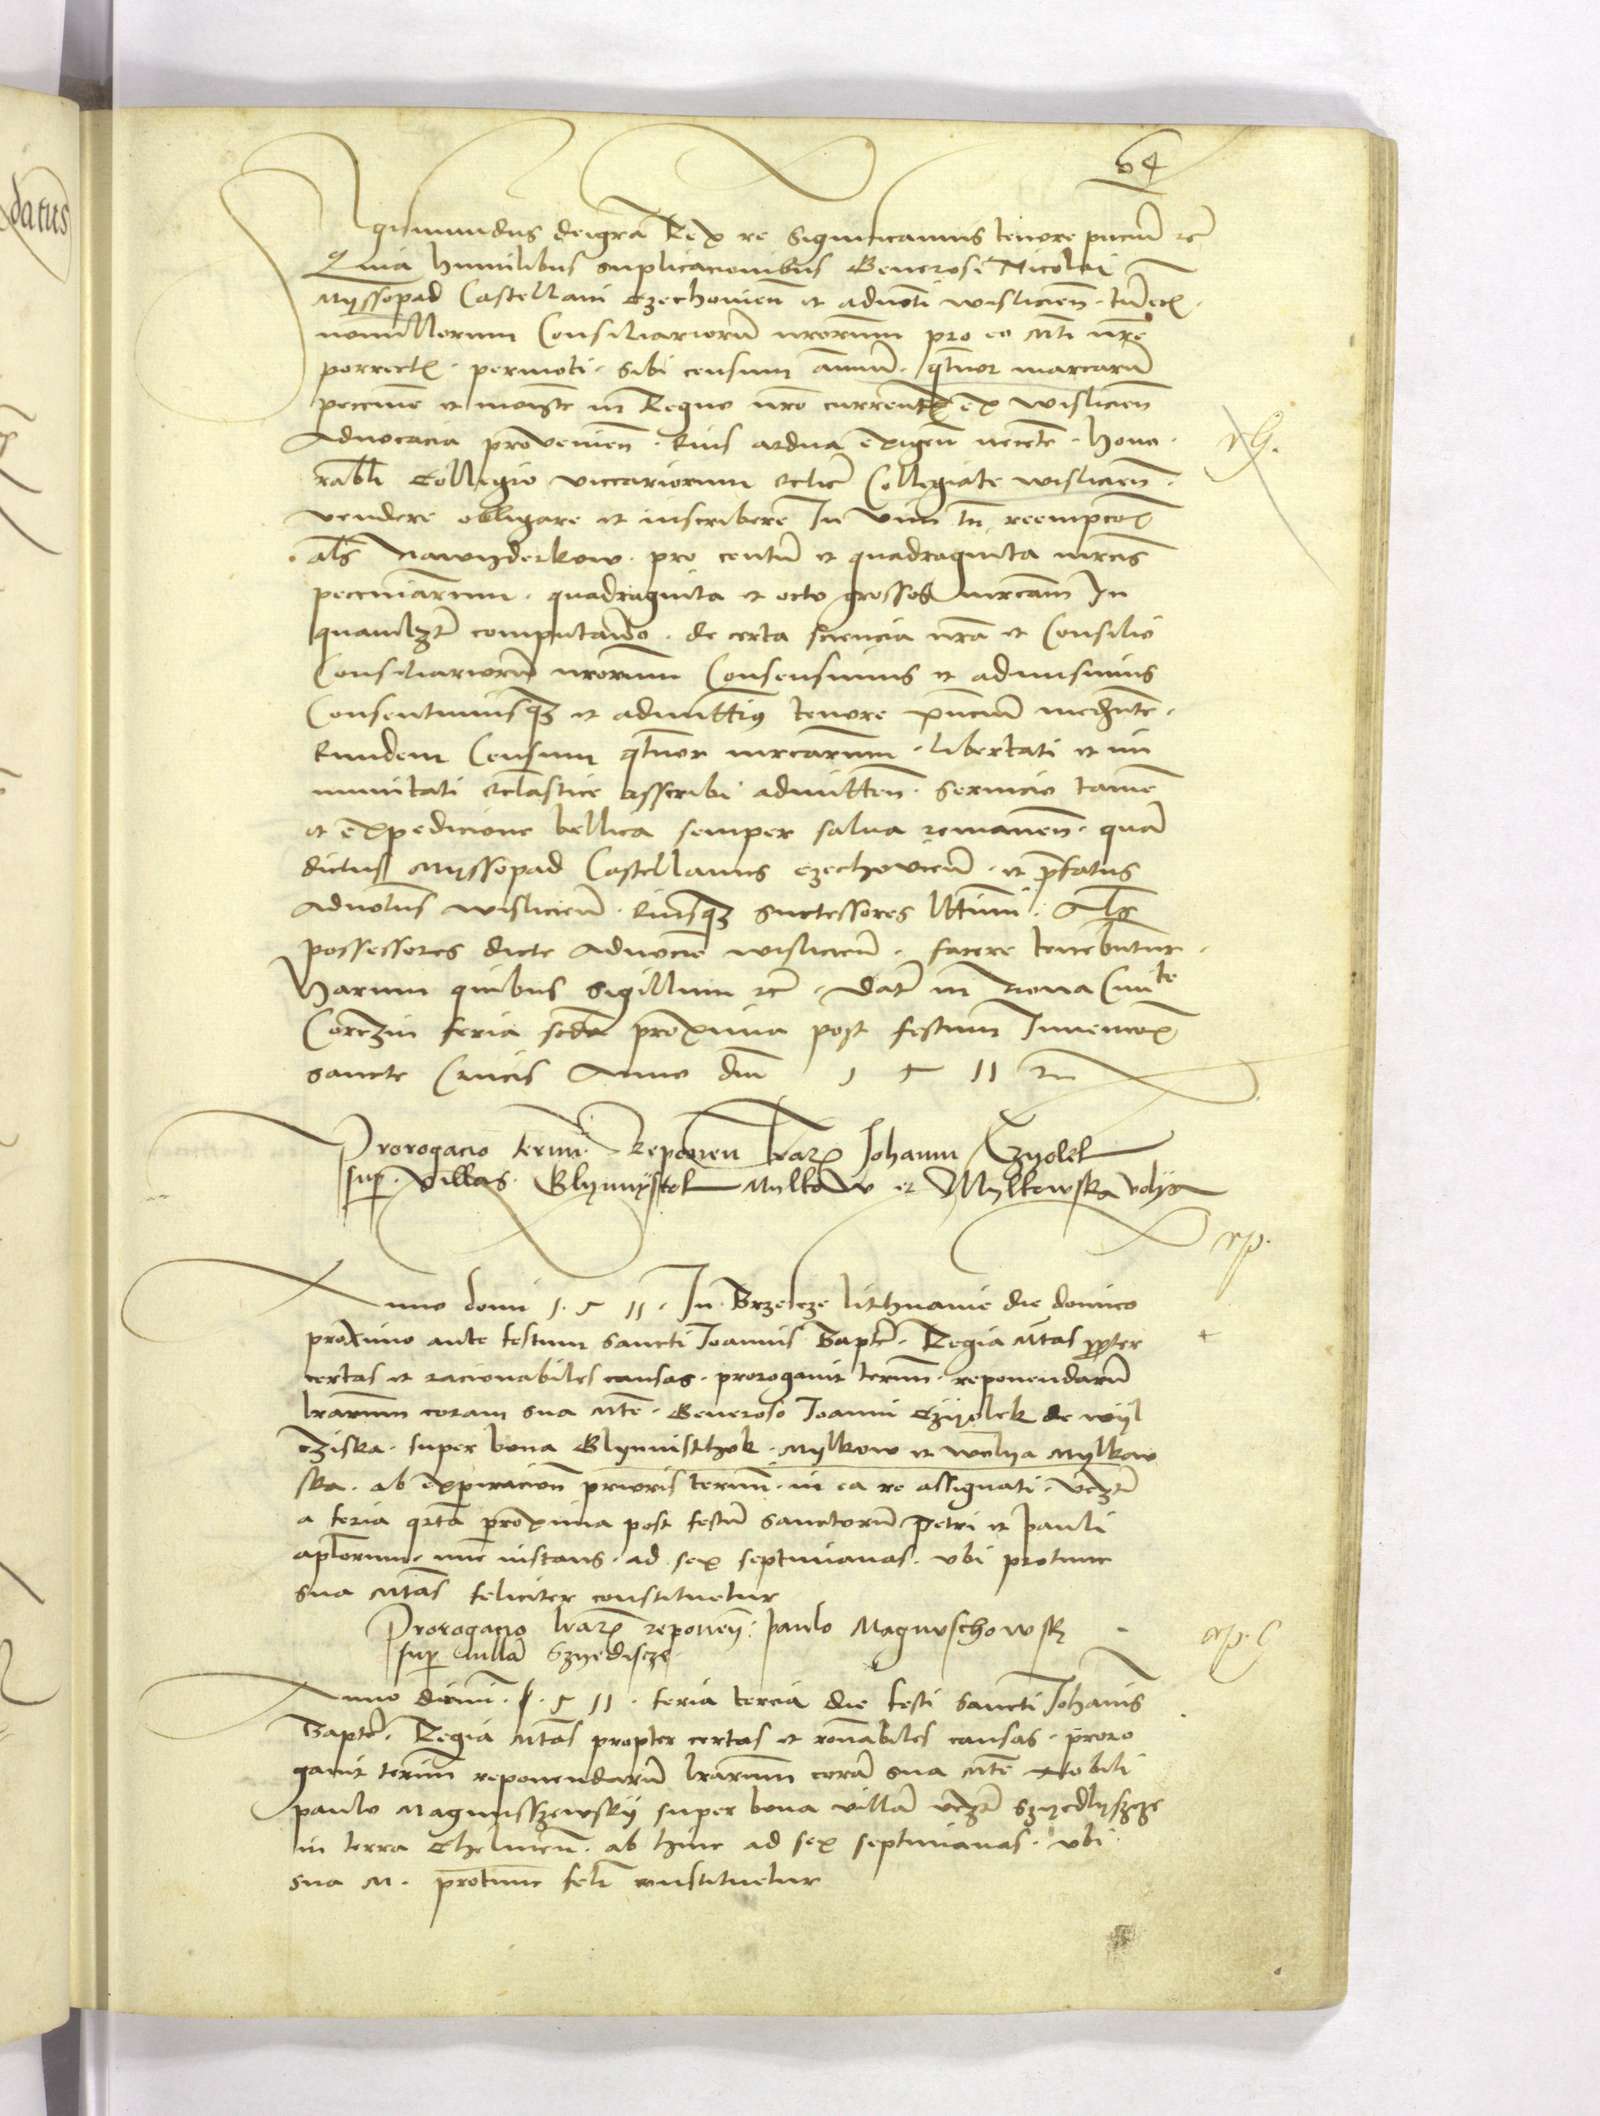 datus
64
Sigismundus dei gra Rex etc Significamus tenore pncium etc
Quia humilibus suplicacionibus Generosi Nicolai
Myssopad Castellani Czechouien et aduocti wislicien tum etc
nonnullorum Consiliariorum nrorum pro eo Mti nre
porrectis permoti sibi censum annuum qtuor marcarum
peccunie et monete in Regno nro currentis ex wislicien
Aduocacia prouenien Eius ardua exigen necessitate Hono
rabli Collegio viccariorum ecclie Collegiate wislicien
vendere obligare et inscribere In vim tn reempcois
als nawyderkow pro centum et quadraginta mrcis
peccuniarum quadraginta et octo grossos mrcam In
quamlzt computando de certa sciencia nra et Consilio
Consiliariorum nrorum Consensimus et admisimus
Consentimusqz et admittimus tenore pncium mediante
Eundem Censum qtuor mrcarum libertati et im
munitati ecclastice asscribi admitten seruicio tamen
et expedicione bellica semper salua remanen quam
dictus Myssopad Castellanus czechouien et prefatus
Aduotus wislicien Eiusqz Successores lttimi Als
possessores dicte Aduocie wislicien facere tenebuntur
Harum quibus Sigillum etc Dat in Noua Ciuite
Corczin feria scda proxima post festum Inuencois
sancte Crucis Anno dni 1511 etc
Prorogacio termi Reponen lrarum Johanni Czyolek
sup villas Glynnystok Mylkow et Mylkowska volya
rp.
Anno domi 1.511. In Brzescze lithuanie die dominico
proximo ante festum Sancti Joannis Bapte Regia Mtas propter
certas et racionabiles causas prorogauit termi reponendarum
lrarum coram sua Mte Generoso Joanni Czyolek de wyl
cziska super bona Glynnisthok Mylkow et wolya Mylkow
ska ab expiracion prioris termi in ea re assignati vdzt
a feria qrta proxima post festum Sanctorum Petri et Pauli
aplorum nunc instans ad sex septimanas vbi protunc
sua Mtas feliciter constituetur
Prorogacio lrarum reponen Paulo Magnuschowsky
sup villam Szyedliscze
rp.
Anno domi 1.511. feria tercia die festi Sancti Johannis
Bapte Regia Mtas propter certas et ronabiles causas proro
gauit termin reponendarum lrarum coram sua Mte Nobili
Paulo Magnusszewsky super bona villam vdzt Szyedlyszcze
in terra Chelmen ab hinc ad sex septimanas vbi
sua M. protunc feli constituetur